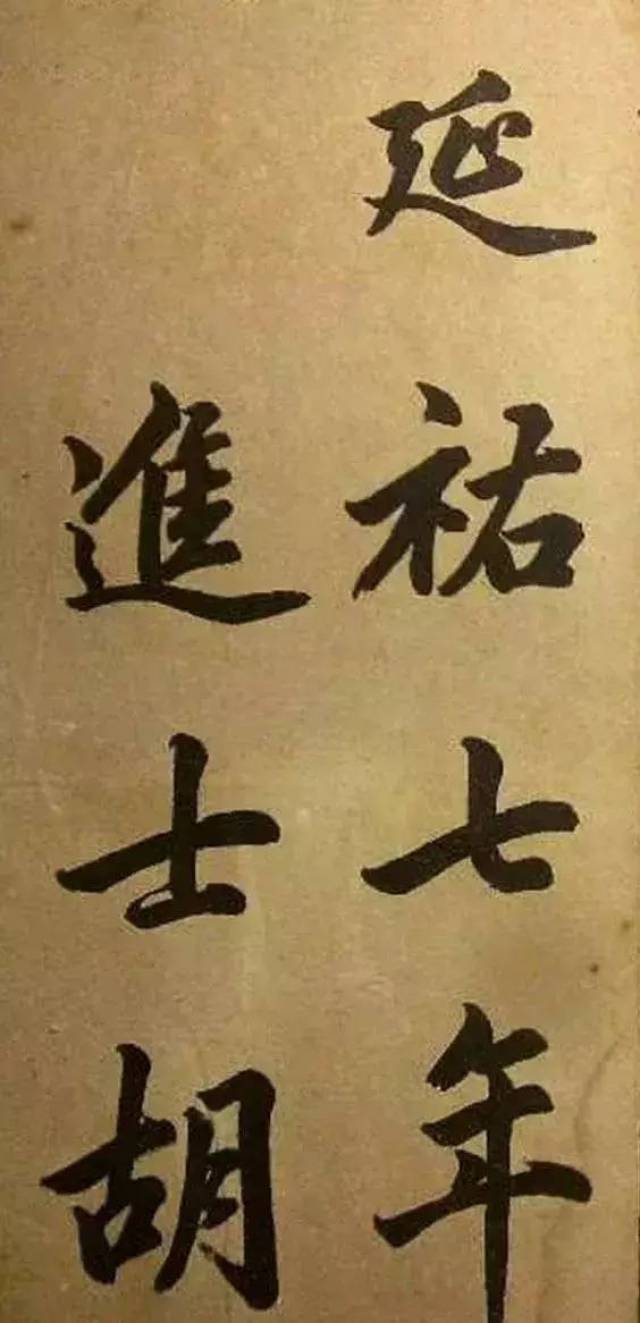 延祐七年
進士胡